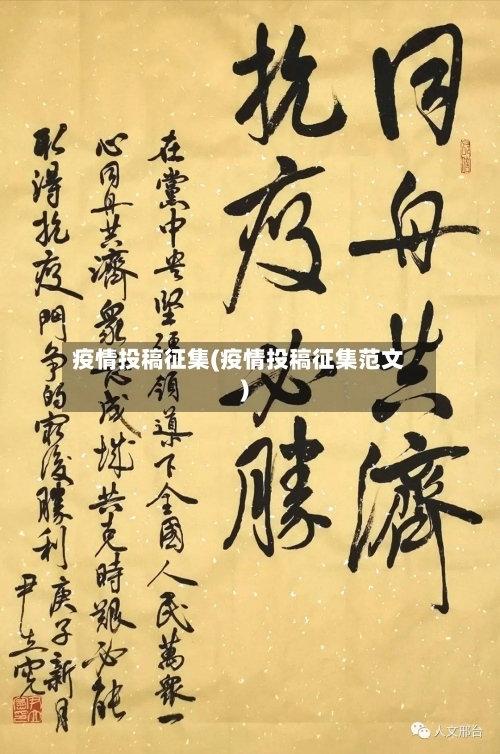 同舟共濟
抗疫必勝
在黨中央坚强領導下全國人民萬衆一
心同舟共濟衆志成城共克時艱必能
取得抗疫鬥争的最後勝利庚子新月
尹立
疫情投稿征集(疫情投稿征集范文
)
人文邢台